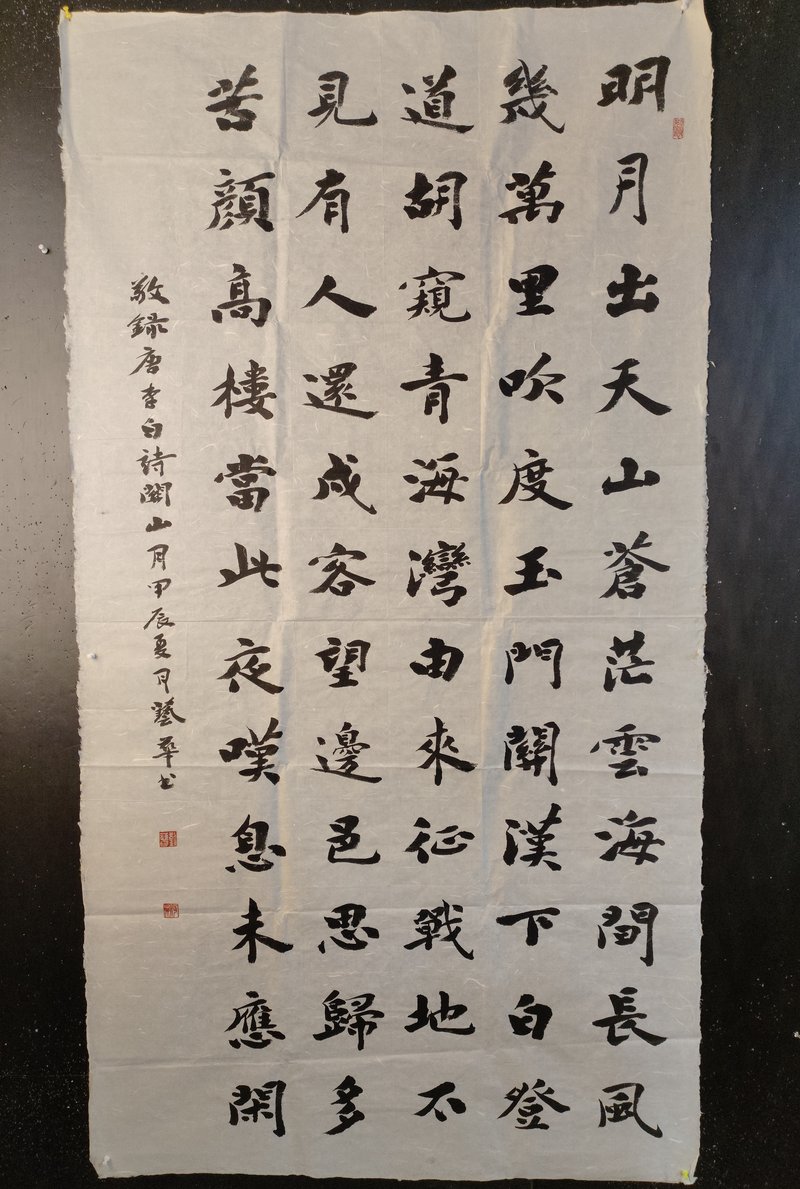 明月出天山蒼茫雲海間長風
幾萬里吹度玉門關漢下白登
道胡窺青海灣由來征戰地不
見有人還成客望邊邑思歸多
苦顏高樓當此夜嘆息未應閑
敬録唐李白詩關山月甲辰夏月藝華書